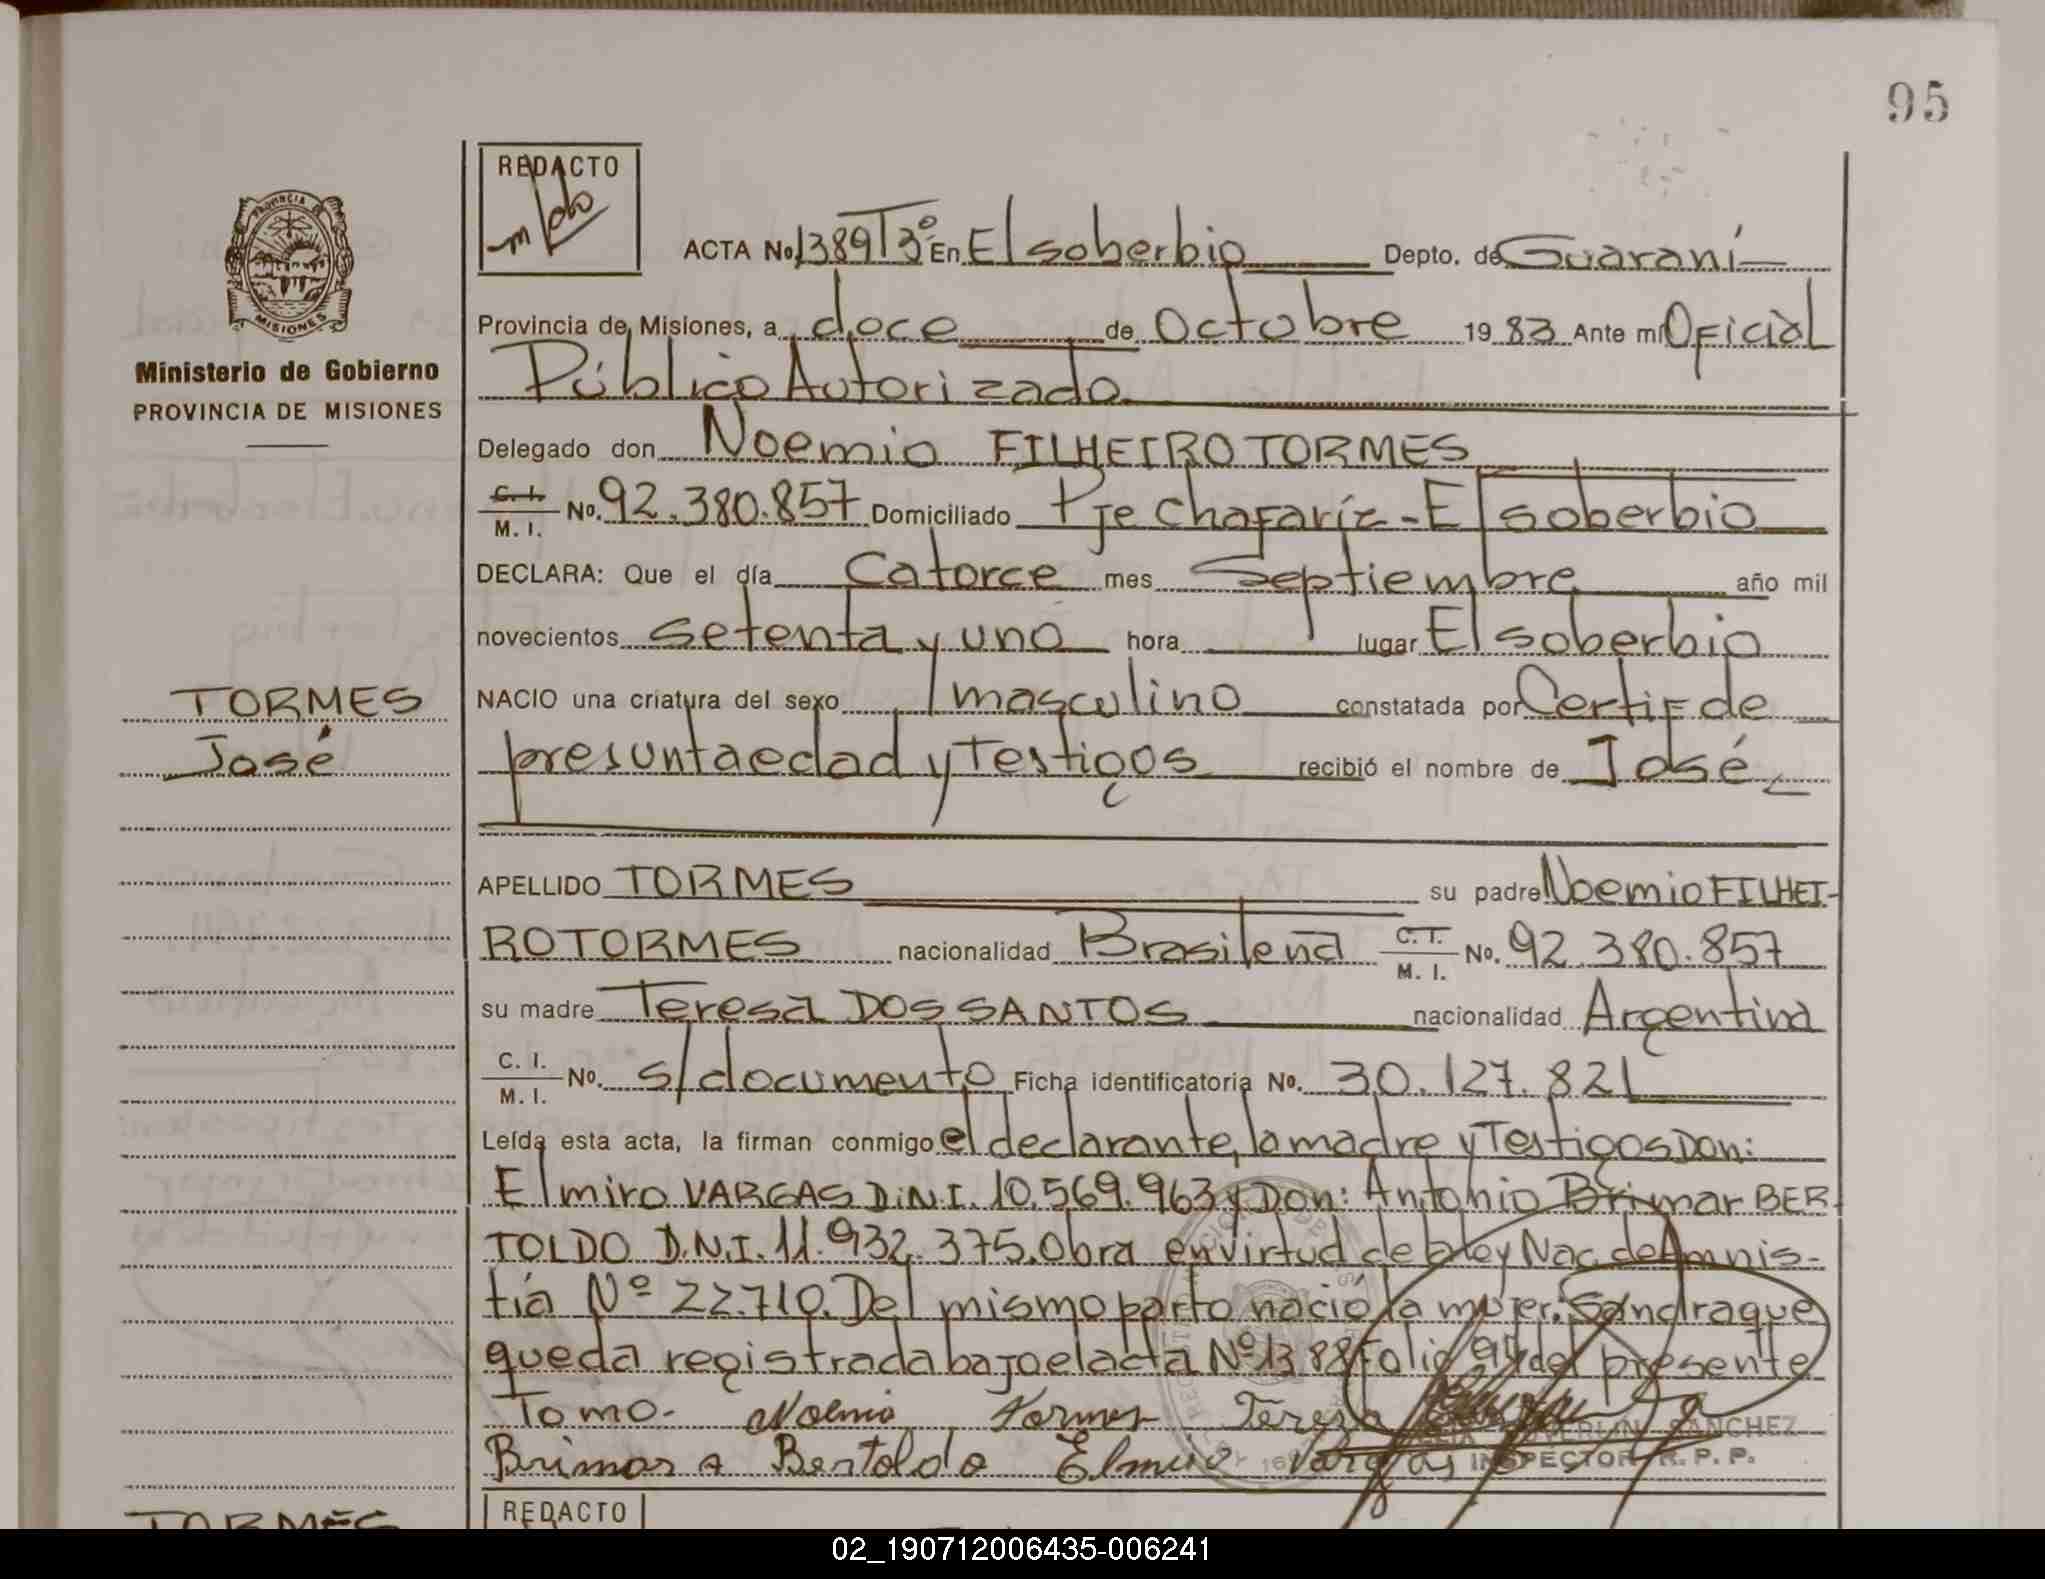 95
REDACTO
ACTA No. 1389 Tº 3º En El soberbio Depto. de Guaraní
PROVINCIA DE
MISIONES
Provincia de Misiones, a doce de Octubre 1983 Ante mi Oficial
Ministerio de Gobierno
PROVINCIA DE MISIONES
Público Autorizado
Delegado don Noemio FILHEIRO TORMES
C. I. M. I. No. 92.380.857 Domiciliado Pje Chafaríz - El soberbio
DECLARA: Que el día Catorce mes Septiembre año mil
novecientos setenta y uno hora lugar El soberbio
TORMES
José
NACIO una criatura del sexo masculino constatada por Certif de
presunta edad y Testigos recibió el nombre de José
APELLIDO TORMES su padre Noemio FILHEI-
RO TORMES nacionalidad Brasileña C. I. M. I. No. 92.380.857
su madre Teresa DOS SANTOS nacionalidad Argentina
C. I. M. I. No. s/documento Ficha identificatoria No. 30.127.821
Leída esta acta, la firman conmigo el declarante, la madre y Testigos Don:
Elmiro VARGAS D.N.I. 10.569.963 y Don: Antonio Brimar BER-
TOLDO D.N.I. 11.932.375. Obra en virtud de la ley Nac. de Amnis-
tía Nº 22.710. Del mismo parto nació la mujer, Sandra que
queda registrada bajo el acta Nº 1388 folio 94 del presente
Tomo - Noemio Tormes Tereza
Brimar A Bertoldo Elmiro Vargas
SANCHEZ
INSPECTOR R. P. P.
TORMES
REDACTO
02_190712006435-006241